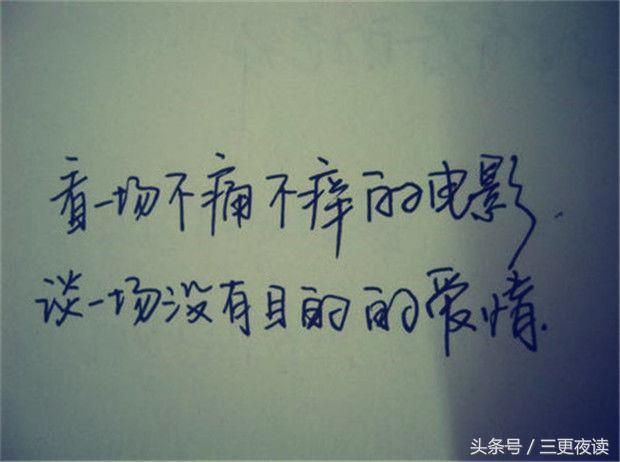 看一场不痛不痒的电影.
谈一场没有目的的爱情.
头条号 / 三更夜读